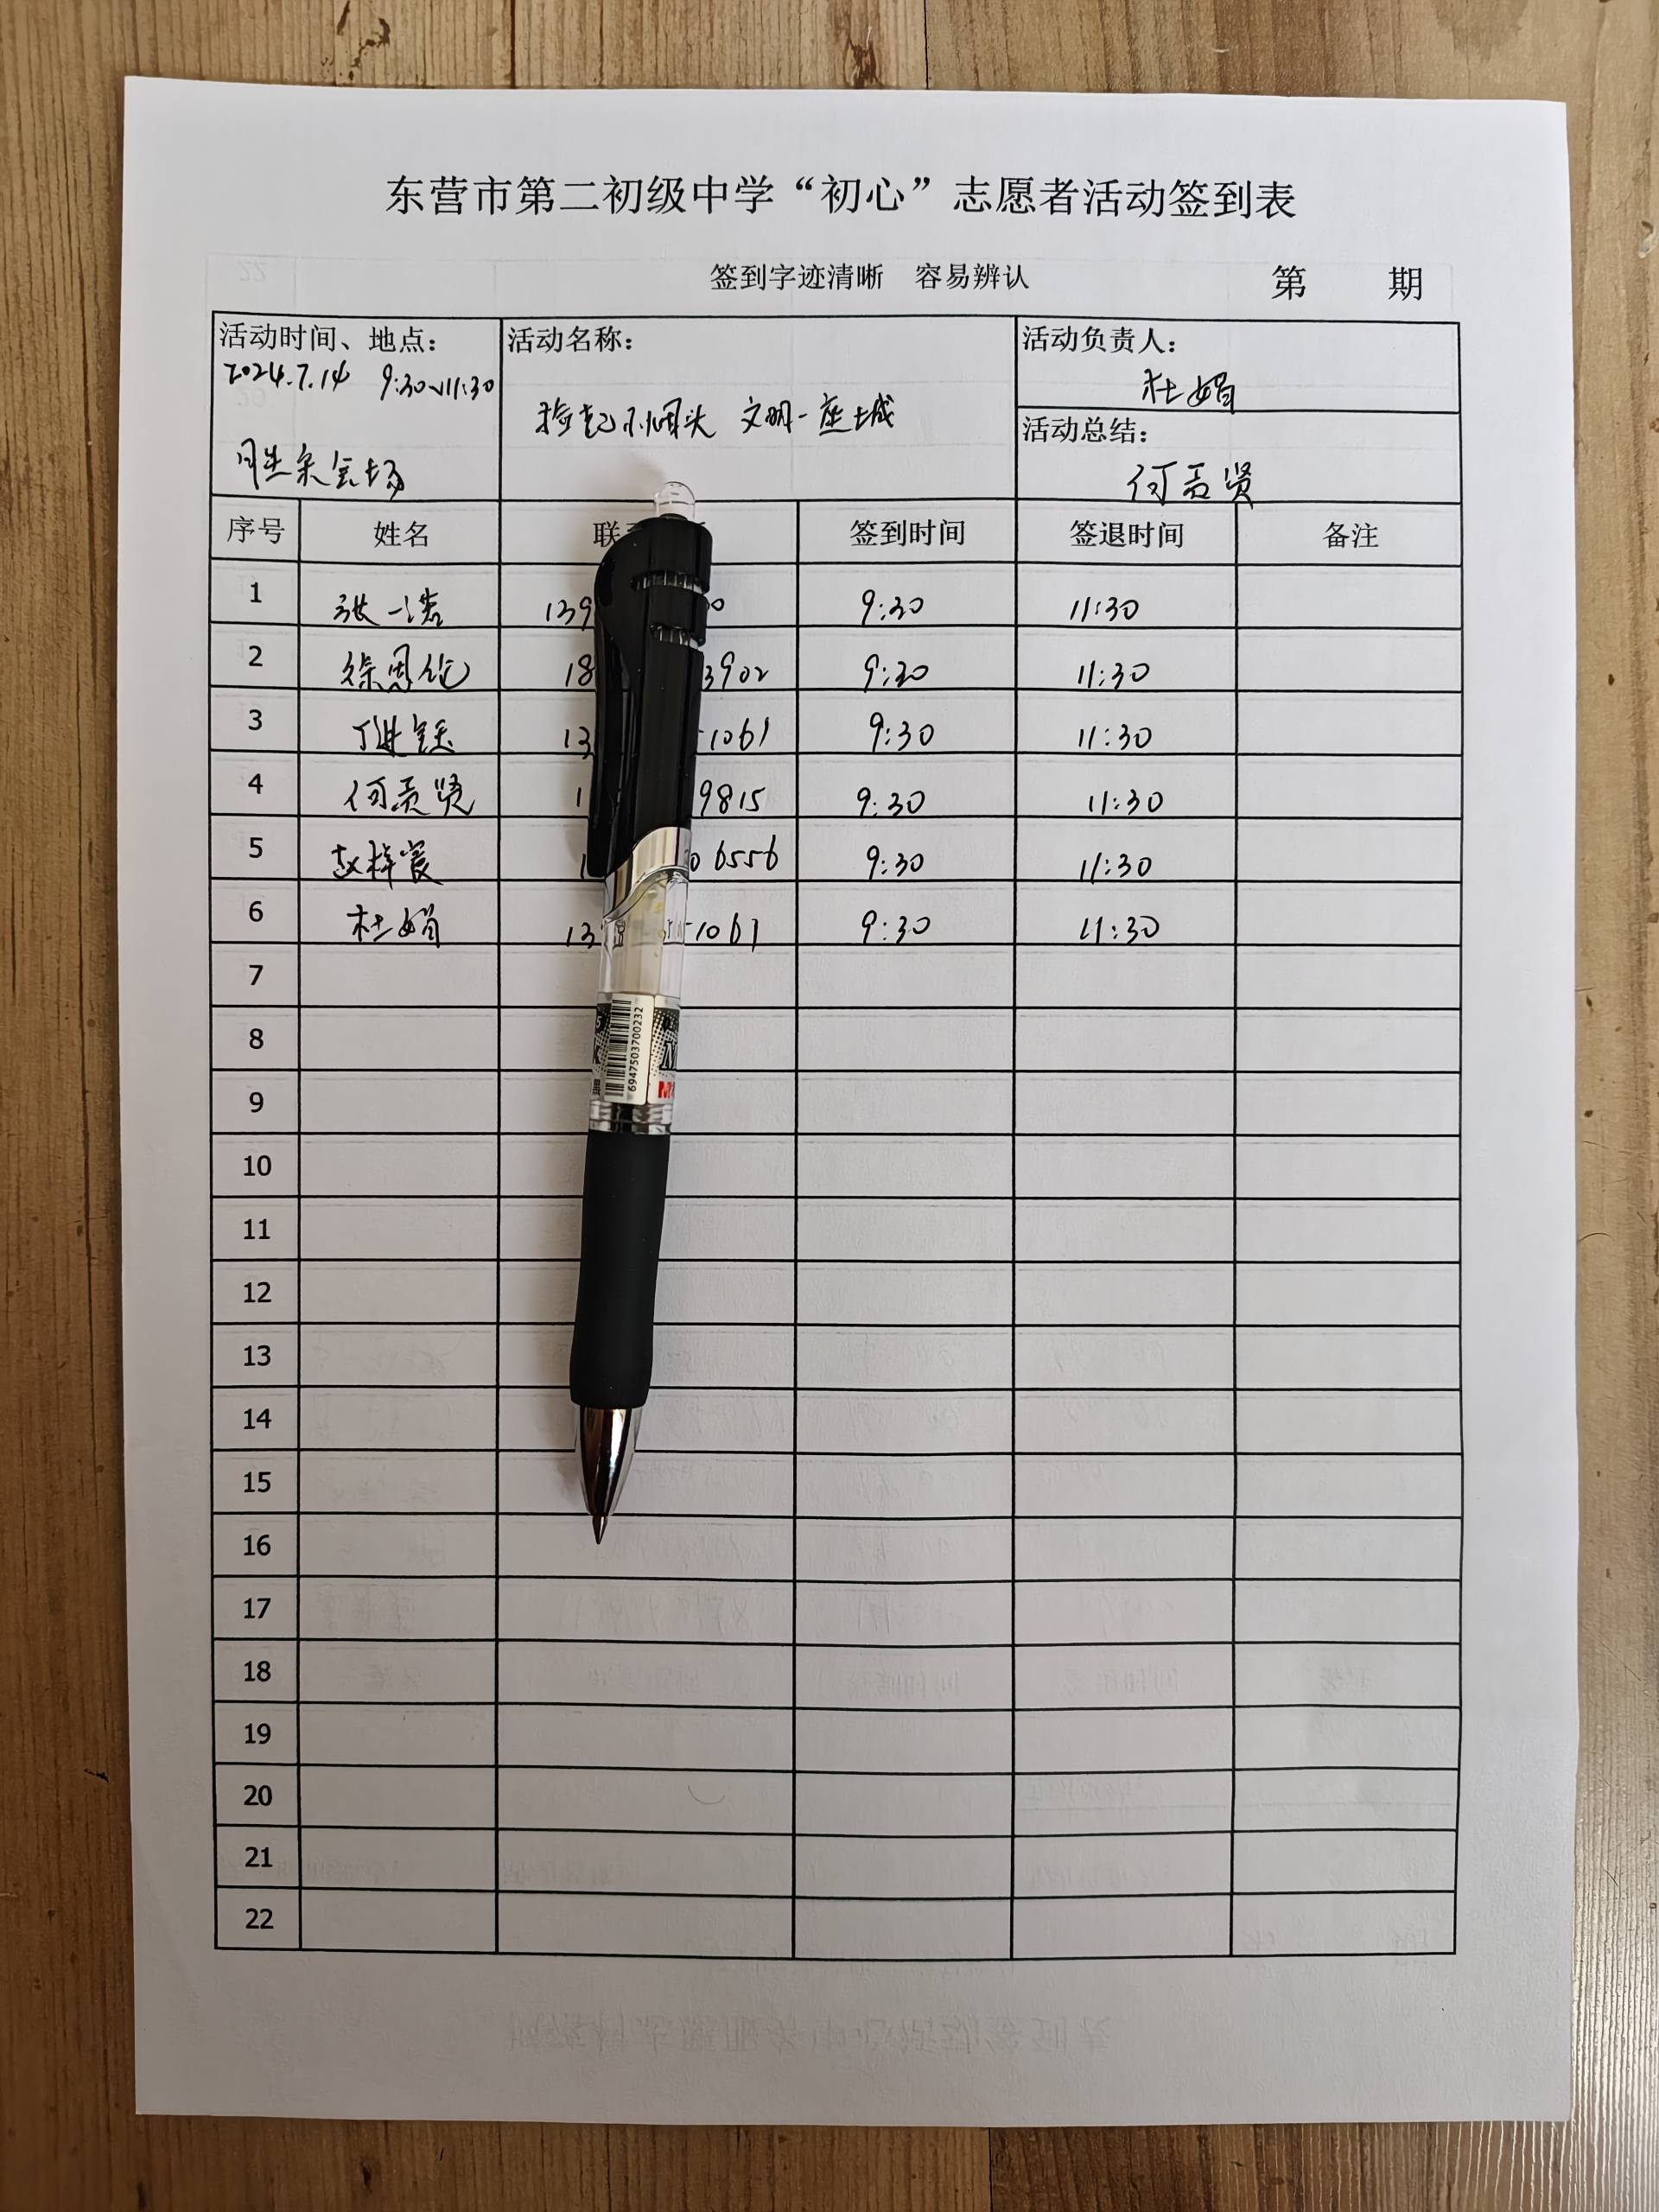 东营市第二初级中学“初心”志愿者活动签到表
签到字迹清晰 容易辨认 第 期
活动时间、地点： 活动名称： 活动负责人：
2024.7.14 9:30~11:30
杜娟
捡起小烟头 文明一座城
活动总结：
月生亲会场
何贡贤
序号 姓名 联 签到时间 签退时间 备注
1 张一诺 139 0 9:30 11:30
2 徐恩伦 18 3902 9:30 11:30
3 丁 13 1061 9:30 11:30
4 何贡贤 1 9815 9:30 11:30
5 赵梓 1 06556 9:30 11:30
6 杜娟 13 51061 9:30 11:30
7
8
9
6947503700232
10
11
12
13
14
15
16
17
18
19
20
21
22